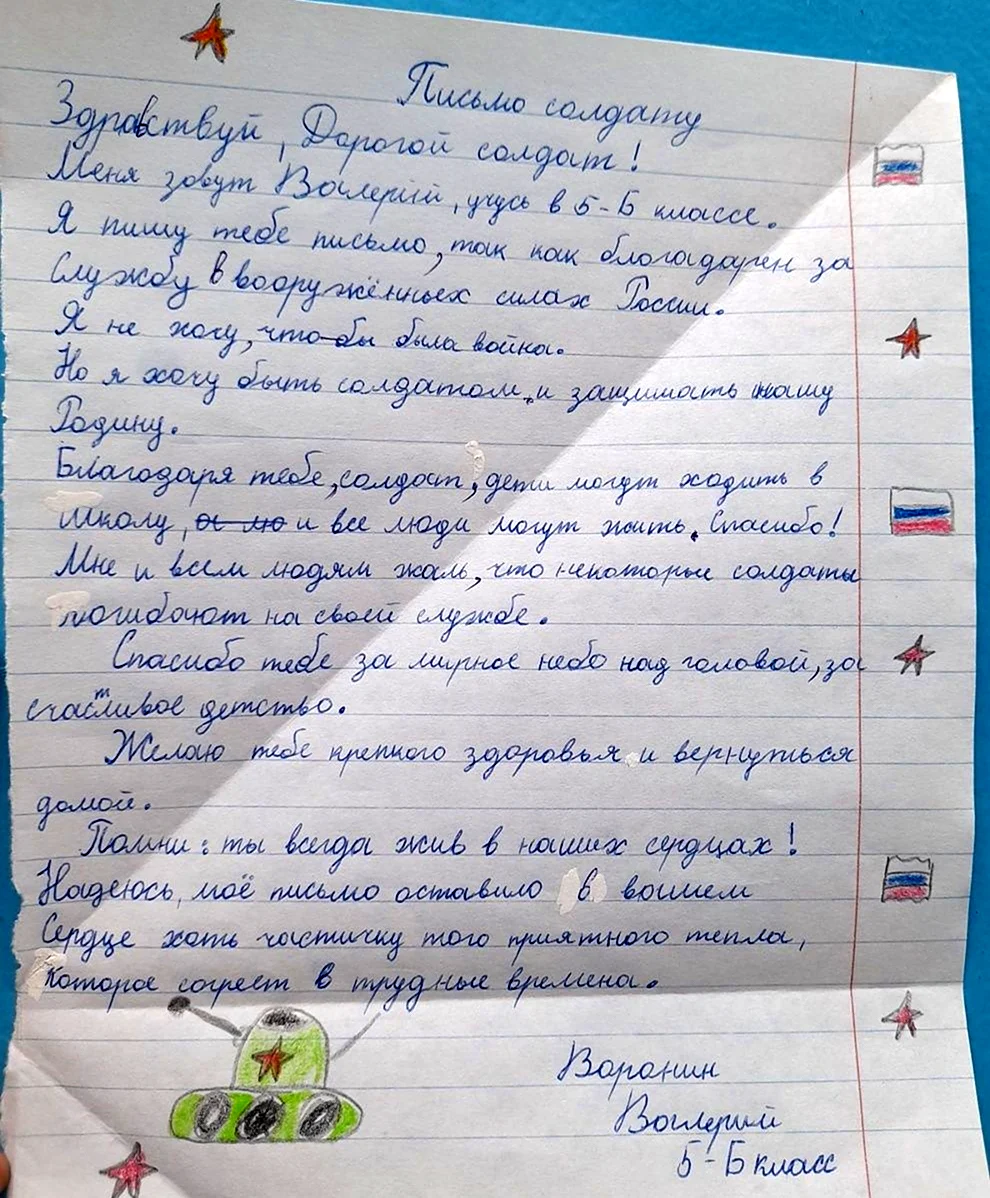 Письмо солдату
Здравствуй, Дорогой солдат!
Меня зовут Валерий, учусь в 5-Б классе.
Я пишу тебе письмо, так как благодарен за
Службу в вооружённых силах России.
Я не хочу, что бы была война.
Но я хочу быть солдатом, и защищать нашу
Родину.
Благодаря тебе, солдат, дети могут ходить в
Школу, и все люди могут жить. Спасибо!
Мне и всем людям жаль, что некоторые солдаты
погибают на своей службе.
Спасибо тебе за мирное небо над головой, за
счастливое детство.
Желаю тебе крепкого здоровья и вернуться
домой.
Помни: ты всегда жив в наших сердцах!
Надеюсь, моё письмо оставило в вашем
Сердце хоть частичку того приятного тепла,
Которое согреет в трудные времена.
Воронин
Валерий
5-Б класс